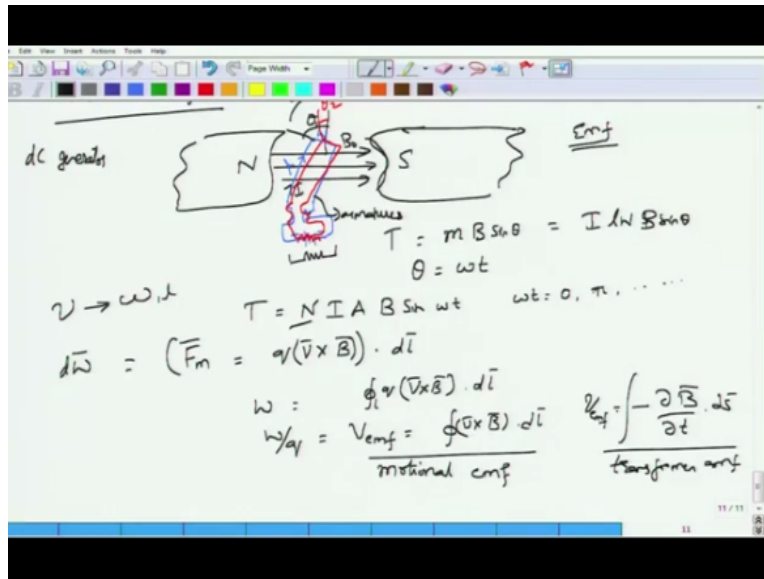 Edit View Insert Actions Tools Help
Page Width
Emf
dc generator
N
B₀
S
I
armatures
T = m B sin θ = I lW B sin θ
θ = ωt
v → ω, l
T = N I A B sin ωt ωt = 0, π, .....
dW̄ = (F̄m = q(v̄ × B̄)) · dl̄
W = ∮ q(v̄ × B̄) · dl̄
W/q = Vemf = ∮(v̄ × B̄) · dl̄
motional emf
Vemf = ∫ -∂B̄/∂t · ds̄
transformer emf
11 / 11
11